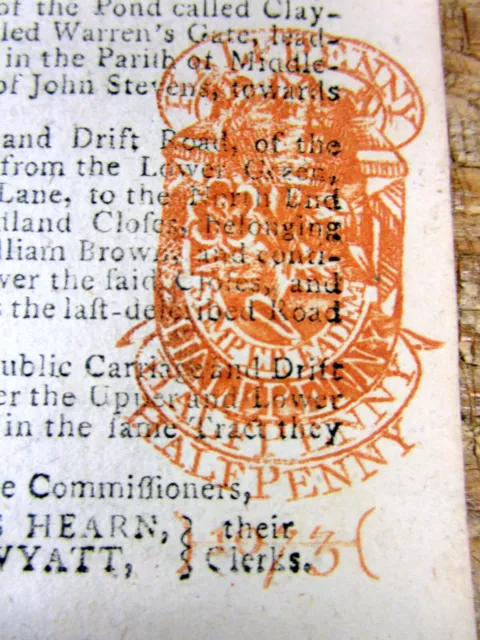 of the Pond called Clay-
lled Warren's Gate, lead-
in the Pariſh of Middle-
of John Stevens, towards
and Drift Road, of the
from the Lower Green,
Lane, to the North End
dland Cloſes, belonging
lliam Brown, and conti-
ver the ſaid Cloſes, and
s the laſt-deſcribed Road
ublic Carriage and Drift
er the Upper and Lower
in the ſame Tract they
e Commiſſioners,
S HEARN, } their
WYATT, } Clerks.
HALFPENNY
HALFPENNY